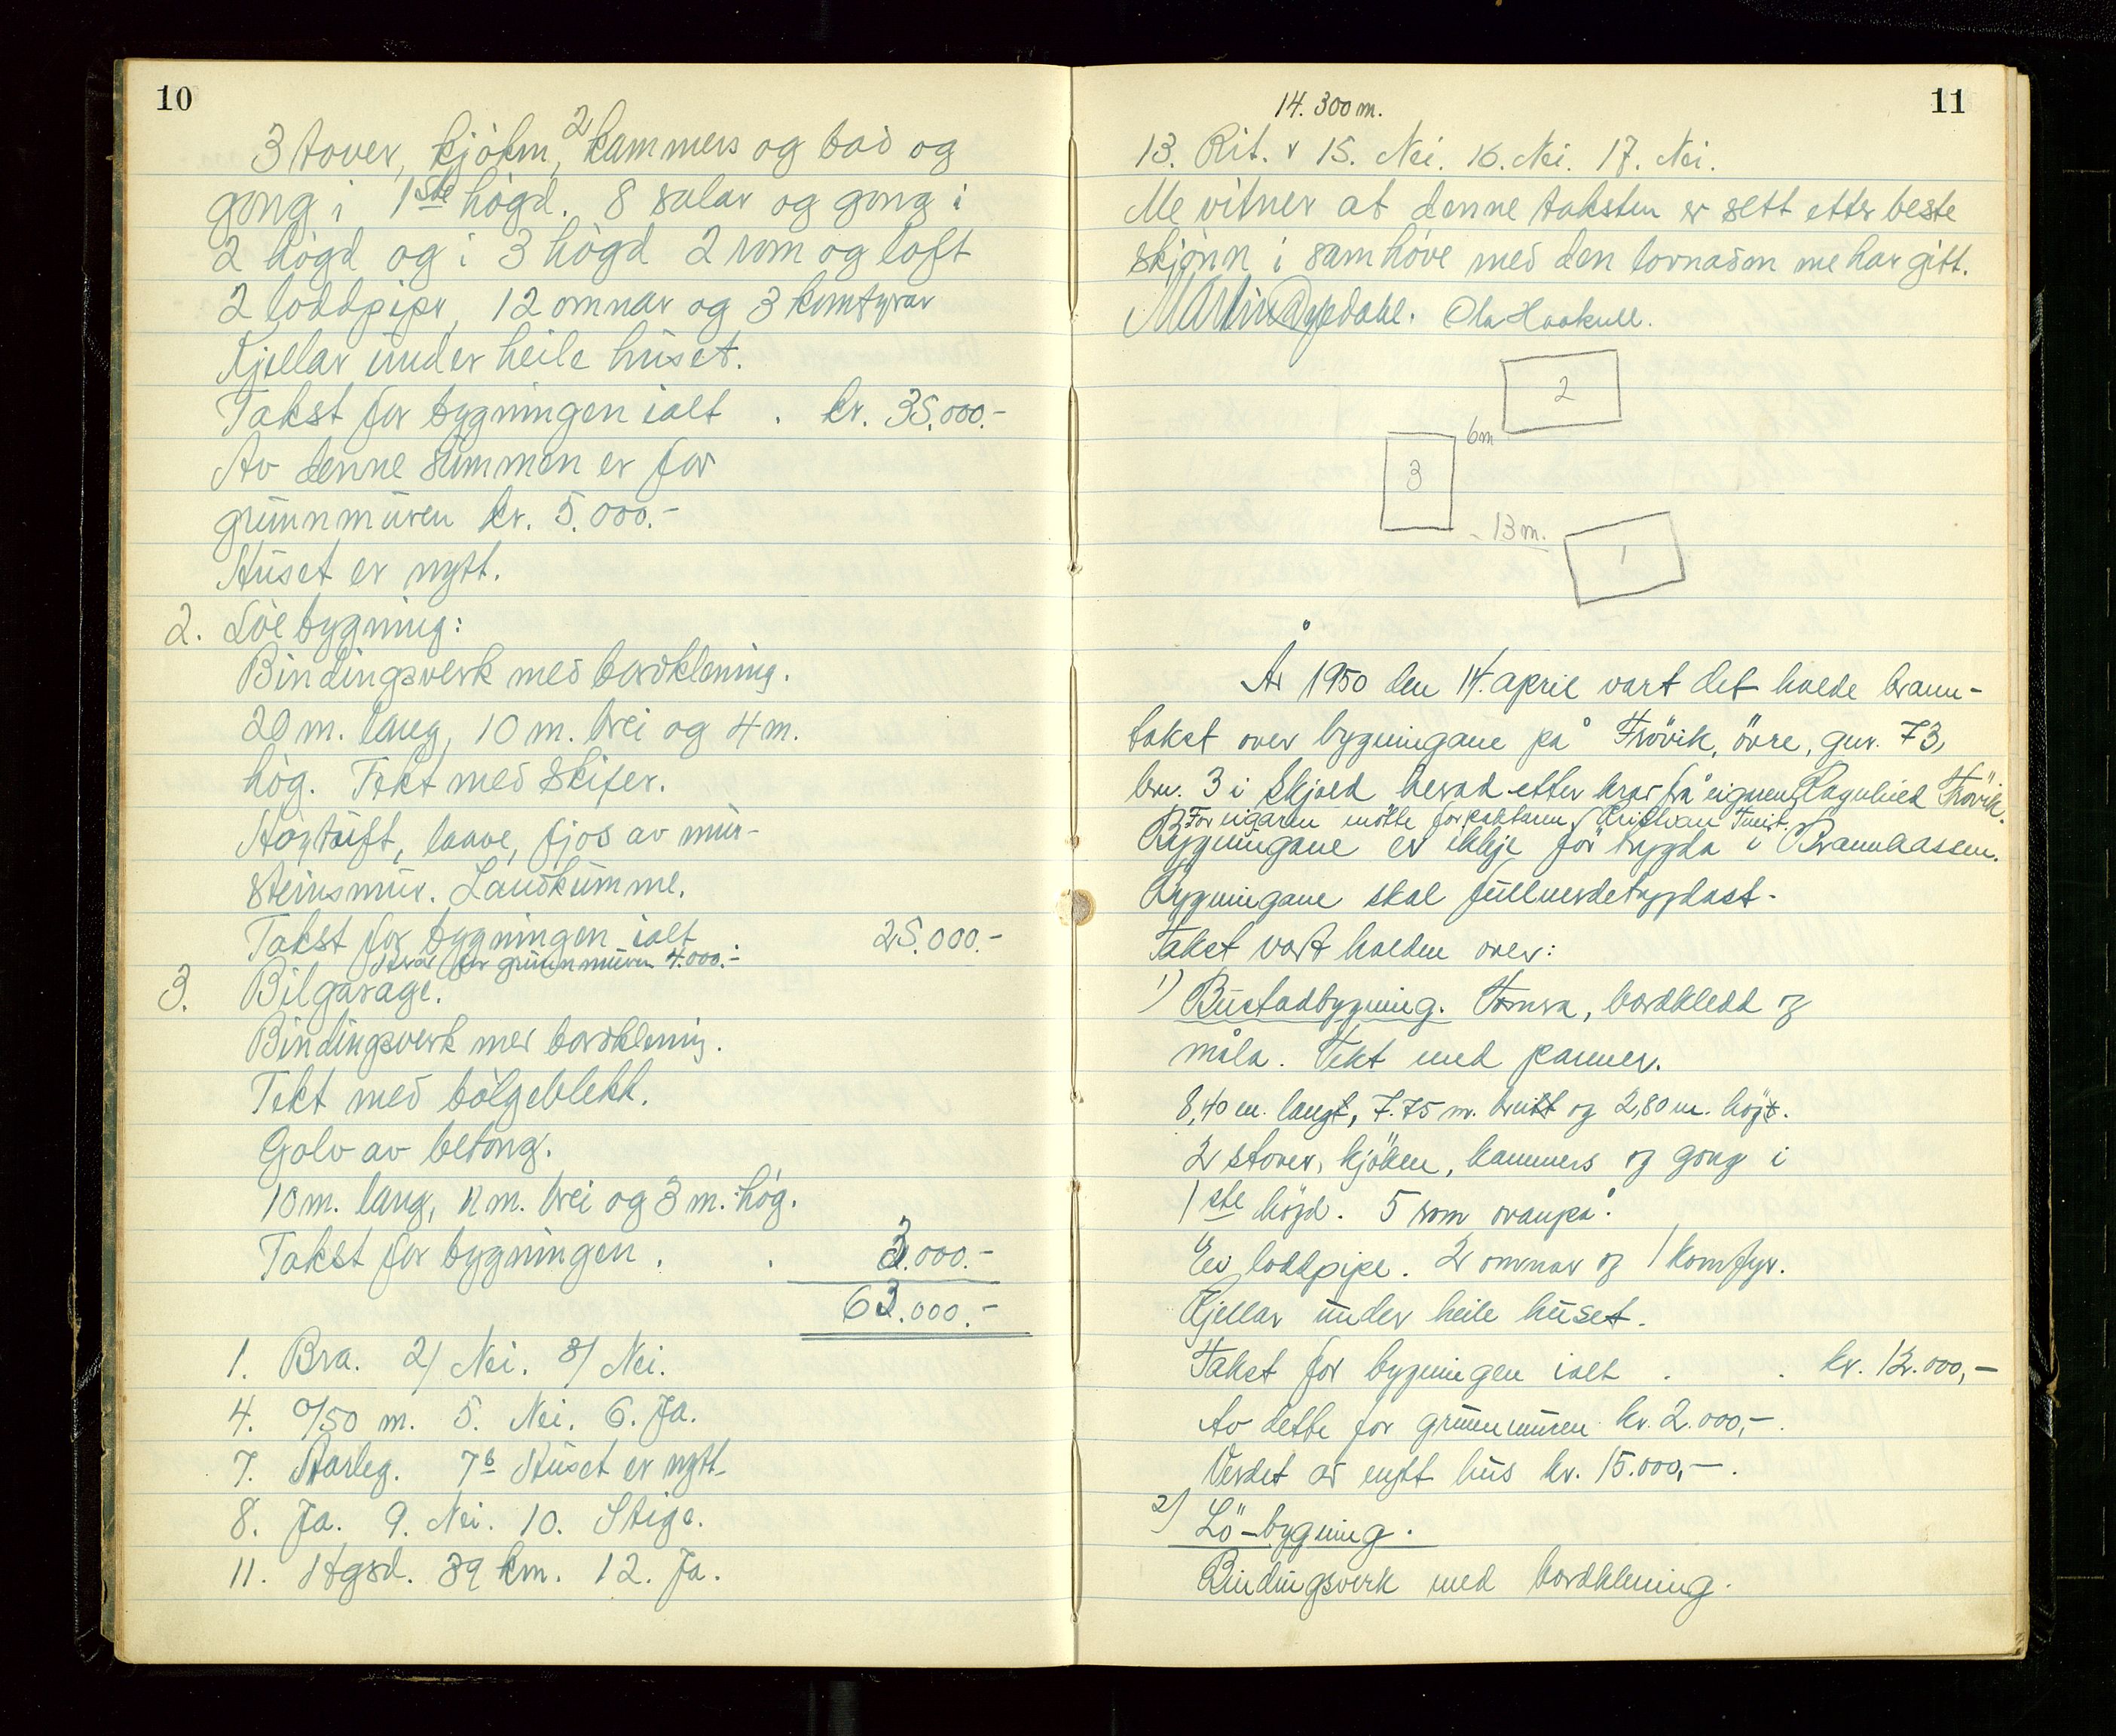 10
3 stover, kjöken, 2 kammers og bad og
gong i 1ste högd. 8 salar og gong i
2 högd og i 3 högd 2 rom og loft
2 loddpipr, 12 omnar og 3 komfyrar
Kjellar under heile huset.
Takst for bygningen ialt . kr. 35.000.-
Av denne summen er for
grunnmuren kr. 5.000.-
Huset er nytt.
2. Löebygning:
Bindingsverk med bordklening.
20 m. lang, 10 m. brei og 4 m.
hög. Tekt med skifer.
Höytuft, laave, fjos av mur-
steinsmur. Landkumme.
Takst for bygningen ialt 25.000.-
Herav for grunnmuren 4.000.-
3. Bilgarage.
Bindingsverk med bordklening.
Tekt med bölgeblekk.
Golv av betong.
10 m. lang, 11 m. brei og 3 m. hög.
Takst for bygningen . . 3.000.-
63.000.-
1. Bra. 2/ Nei. 3/ Nei.
4. 0/50 m. 5. Nei. 6. Ja.
7. Farleg. 7b Huset er nytt.
8. Ja. 9. Nei. 10. Stige.
11. Hgsd. 39 km. 12. Ja.
11
14. 300 m.
13. Rit. v 15. Nei. 16. Nei. 17. Nei.
Me vitner at denne taksten er sett etter beste
skjönn i samhöve med den lovnaden me har gitt.
Martin Dypdahl. Ola Haakull.
2
6m
3
13 m.
1
År 1950 den 14. april vart det halde brann-
takst over bygningane på Frövik, övre, gnr. 73,
bnr. 3 i Skjold herad etter krav frå eigaren Ragnhild Frövik.
For eigaren mötte forpaktaren Kristian Tveit.
Bygningane er ikkje för trygda i Brannkassen.
Bygningane skal fullverdetrygdast.
Takst vart halden over:
1) Bustadbygning. Tömra, bordkledd og
måla. Tekt med panner.
8,40 m. langt, 7.75 m. breitt og 2,80 m. högt.
2 stover, kjöken, kammers og gong i
1ste högd. 5 rom ovanpå.
Ei loddpipe. 2 omnar og 1 komfyr.
Kjellar under heile huset.
Takst for bygningen ialt . . kr. 12.000,-
Av dette for grunnmuren kr. 2.000,-.
Verdet av nytt hus kr. 15.000,-.
2) Lö-bygning.
Bindingsverk med bordklening.